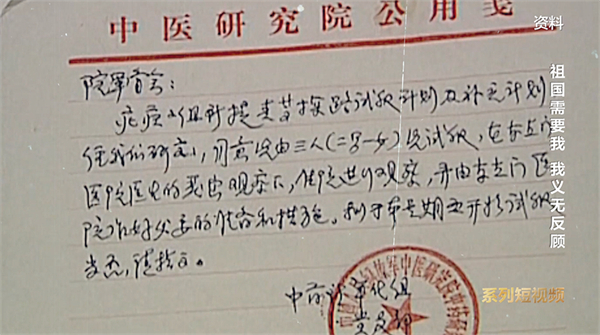 中医研究院公用笺
资料
院军管会:
疟疾小组新提
探路试验计划及补充计划
经我们研究,同意先由三人(二男一女)先试验,在东直门
医院医生的密切观察下,住院进行观察,并由东直门医
院作好必要的准备和措施。拟于本星期五开始试验
当否,请指示。
中药所革化组
祖国需要我 我义无反顾
系列短视频